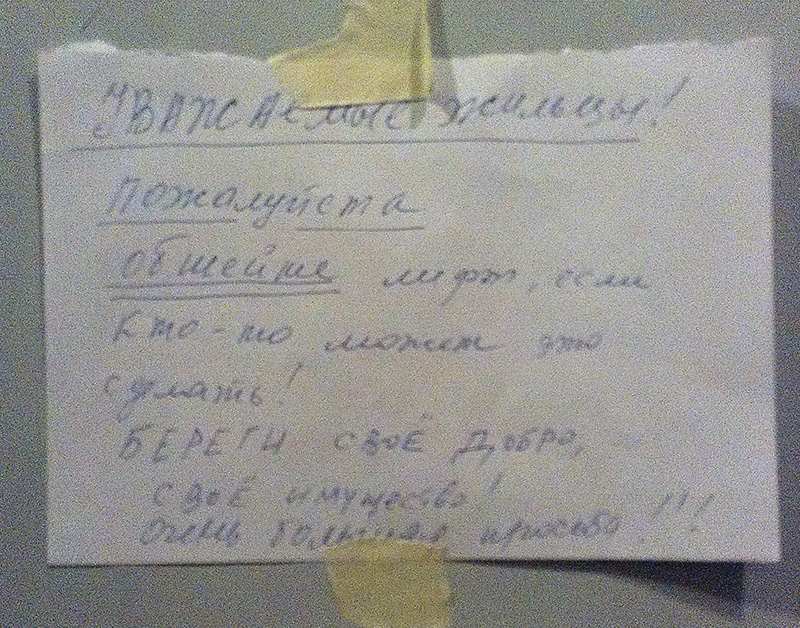 УВАЖАеМЫЕ жильцы!
Пожалуйста
обшейте лифт, если
кто-то может это
сделать!
БЕРЕГИ своЁ Добро,
своё имущество!
Очень большая просьба!!!